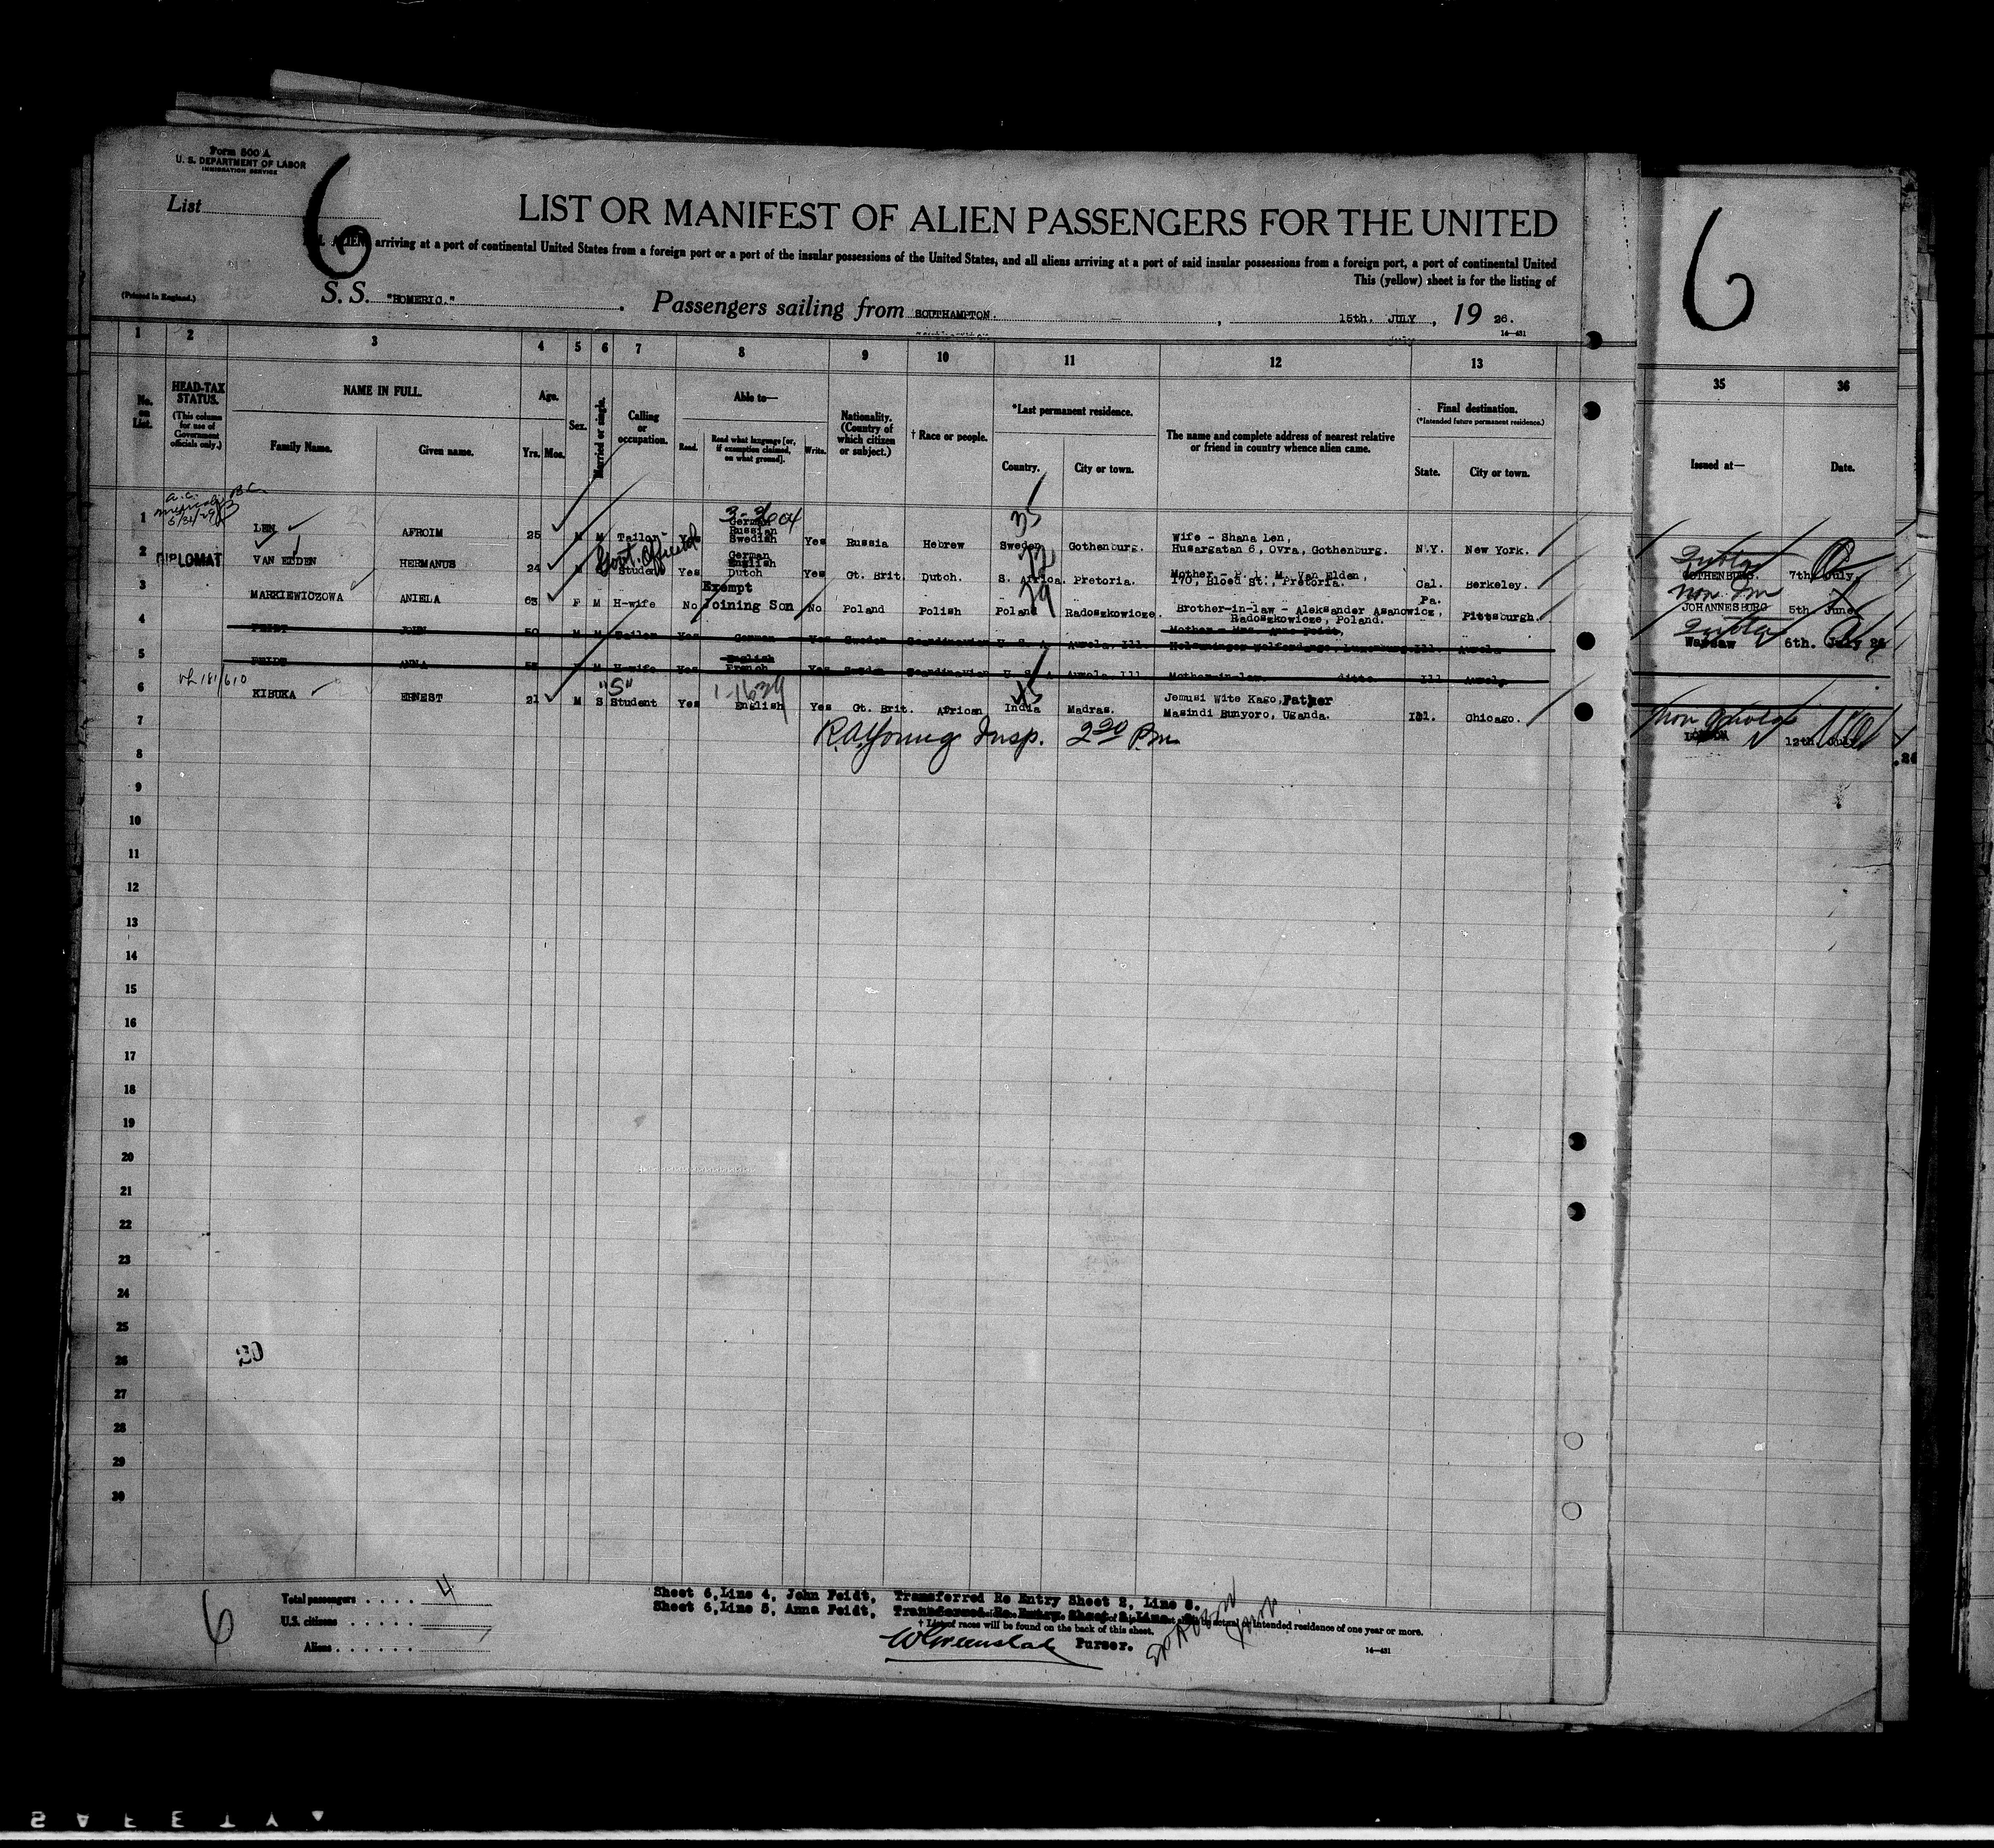 Form 500 A
U. S. DEPARTMENT OF LABOR
IMMIGRATION SERVICE
6
List
LIST OR MANIFEST OF ALIEN PASSENGERS FOR THE UNITED
ALIENS arriving at a port of continental United States from a foreign port or a port of the insular possessions of the United States, and all aliens arriving at a port of said insular possessions from a foreign port, a port of continental United
This (yellow) sheet is for the listing of
(Printed in England.)
S. S. "HOMERIC." Passengers sailing from SOUTHAMPTON. , 15th. JULY , 19 26.
14—431
6
1 2 3 4 5 6 7 8 9 10 11 12 13 35 36
No. on List.
HEAD-TAX STATUS.
(This column for use of Government officials only.)
NAME IN FULL.
Family Name. Given name.
Age.
Yrs. Mos.
Sex.
Married or single.
Calling or occupation.
Able to—
Read. Read what language [or, if exemption claimed, on what ground]. Write.
Nationality. (Country of which citizen or subject.)
† Race or people.
*Last permanent residence.
Country. City or town.
The name and complete address of nearest relative or friend in country whence alien came.
Final destination.
(*Intended future permanent residence.)
State. City or town.
Issued at— Date.
1 LEN AFROIM 25 M M Tailor Yes German Russian Swedish Yes Russia Hebrew Sweden Gothenburg. Wife - Shana Len, Husargatan 6, Ovra, Gothenburg. N.Y. New York. Quota GOTHENBURG. 7th July.
2 DIPLOMAT VAN ELDEN HERMANUS 24 Govt. Official Student Yes German English Dutch Yes Gt. Brit. Dutch. S. Africa. Pretoria. Mother - P. L. M. Van Elden, 170, Bloed St., Pretoria. Cal. Berkeley. Non Im JOHANNESBURG 5th June
3 MARKIEWICZOWA ANIELA 63 F M H-wife No Exempt Joining Son No Poland Polish Poland Radoszkowicze. Brother-in-law - Aleksander Asanowicz, Radoszkowicze, Poland. Pa. Pittsburgh. Quota Warsaw 6th. July 26
4 FEIDT JOHN 50 M M Tailor Yes German Yes Sweden Scandinavian U S A Aurela, Ill. Mother - Mrs. Anna Feidt, Ill. Aurela
5 FEIDT ANNA 55 M H-wife Yes English French Yes Sweden Scandinavian U S A Aurela Ill Mother-in-law ditto. Ill Aurela
6 KIBUKA ERNEST 21 M S "S" Student Yes English Yes Gt. Brit. African India Madras. Jemusi Wite Kago, Father Masindi Bunyoro, Uganda. Ill. Chicago. Non Quota LONDON 12th. July 26
7 R.A. Young Insp. 2 20 P.m.
8
9
10
11
12
13
14
15
16
17
18
19
20
21
22
23
24
25
26
27
28
29
30
6
Total passengers 4
U.S. citizens
Aliens
Sheet 6, Line 4, John Feidt, Transferred Re Entry Sheet 2, Line 8.
Sheet 6, Line 5, Anna Feidt, Transferred Re Entry Sheet
† List of races will be found on the back of this sheet.
intended residence of one year or more.
Purser.
14—431
SAFETY